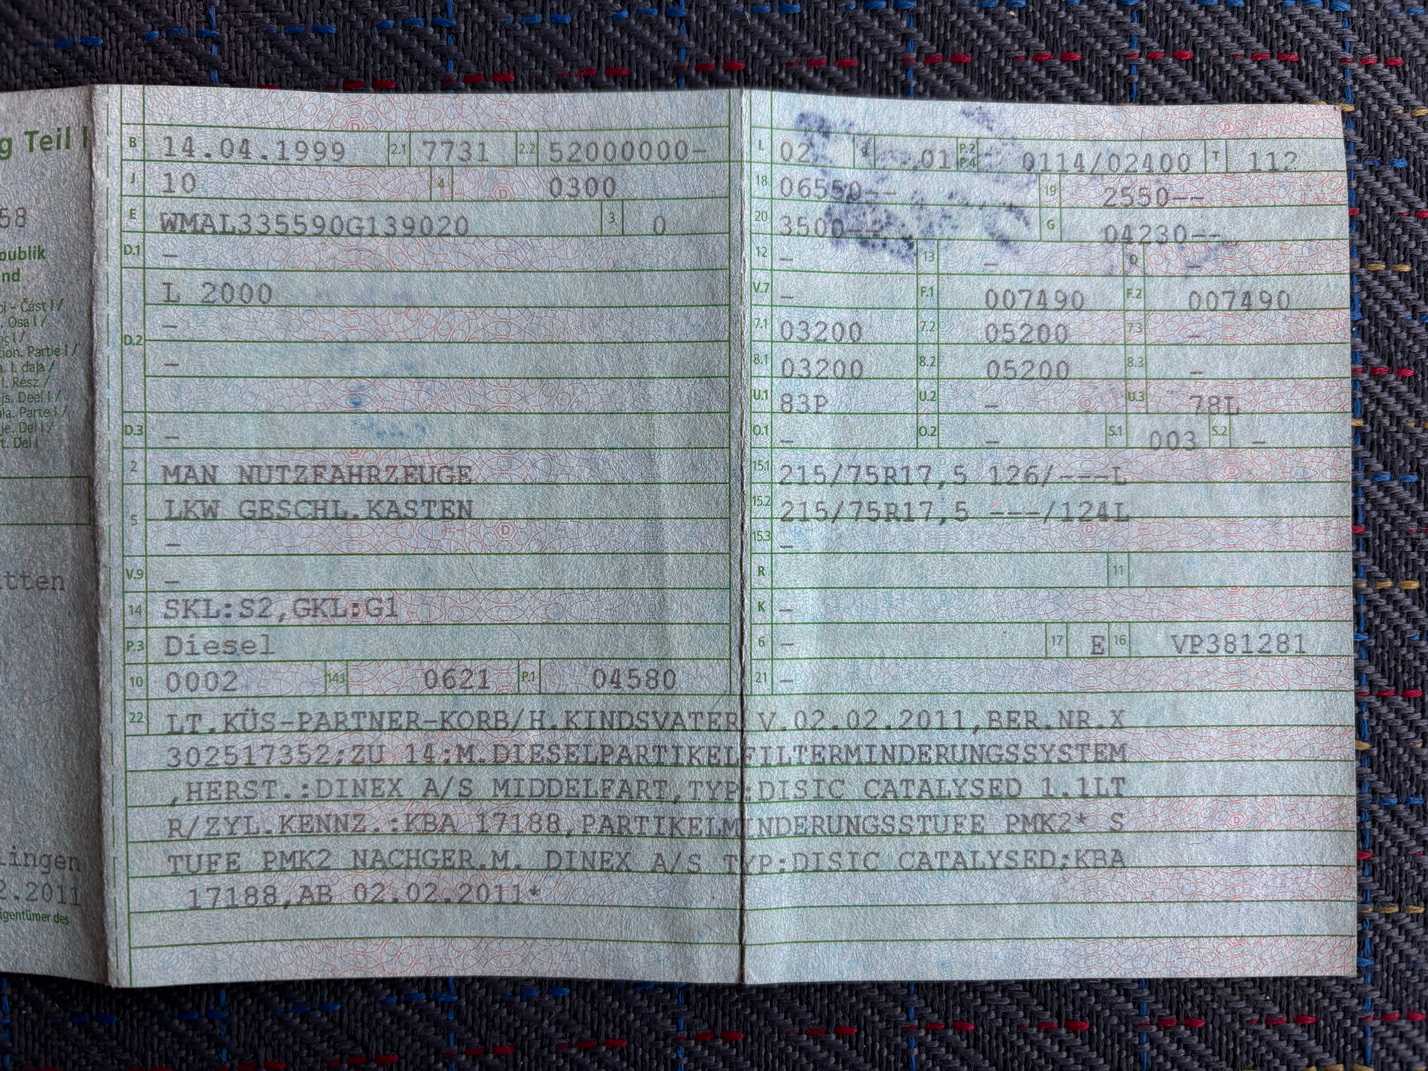 g Teil I
58
publik
nd
Část I /
Osa I /
Partie I /
I. daļa /
Rész /
Deel I /
Parte I /
Del I /
Del I
tten
lingen
2.2011
igentümer des
B 14.04.1999 2.1 7731 2.2 52000000-
J 10 4 0300
E WMAL335590G139020 3 0
D.1 -
L 2000
-
D.2
-
D.3 -
2 MAN NUTZFAHRZEUGE
LKW GESCHL.KASTEN
5
-
V.9 -
14 SKL:S2,GKL:G1
P.3 Diesel
10 0002 14.1 0621 P.1 04580
L 02 9 01 P.2 P.4 0114/02400 T 112
18 06550-- 19 2550--
20 3500-- G 04230--
12 - 13 - Q -
V.7 - F.1 007490 F.2 007490
7.1 03200 7.2 05200 7.3 -
8.1 03200 8.2 05200 8.3 -
U.1 83P U.2 - U.3 78L
O.1 - O.2 - S.1 003 S.2 -
15.1 215/75R17,5 126/---L
15.2 215/75R17,5 ---/124L
15.3 -
R 11
K -
6 - 17 E 16 VP381281
21 -
22 LT.KÜS-PARTNER-KORB/H.KINDSVATER V.02.02.2011,BER.NR.X
302517352;ZU 14:M.DIESELPARTIKELFILTERMINDERUNGSSYSTEM
,HERST.:DINEX A/S MIDDELFART,TYP:DISIC CATALYSED 1.1LT
R/ZYL.KENNZ.:KBA 17188,PARTIKELMINDERUNGSSTUFE PMK2* S
TUFE PMK2 NACHGER.M. DINEX A/S TYP:DISIC CATALYSED;KBA
17188,AB 02.02.2011*